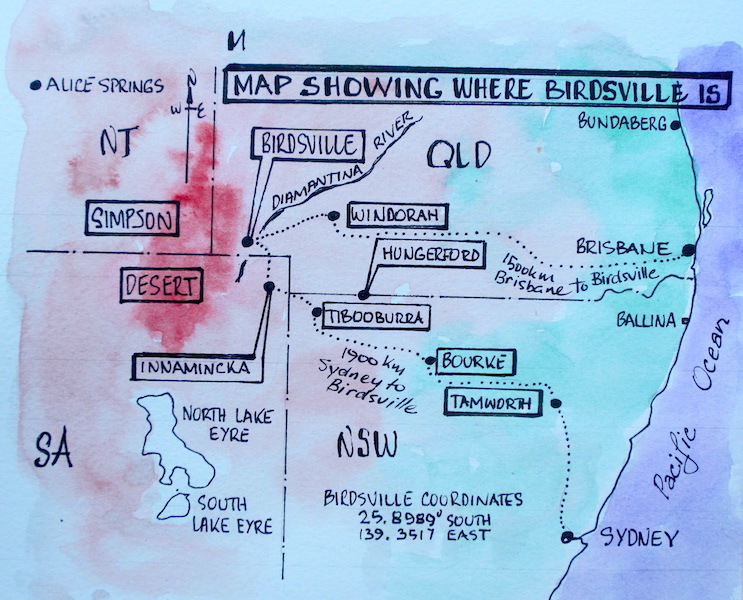 M
MAP SHOWING WHERE BIRDSVILLE IS
ALICE SPRINGS
N
W E
BUNDABERG
NT
BIRDSVILLE
DIAMANTINA RIVER
QLD
SIMPSON
WINDORAH
BRISBANE
HUNGERFORD
1500km
Brisbane to Birdsville
DESERT
TIBOOBURRA
BALLINA
INNAMINCKA
1900 km
Sydney to
Birdsville
BOURKE
TAMWORTH
Pacific Ocean
NORTH LAKE
EYRE
SA
NSW
SOUTH
LAKE EYRE
BIRDSVILLE COORDINATES
25.8989° SOUTH
139.3517 EAST
SYDNEY